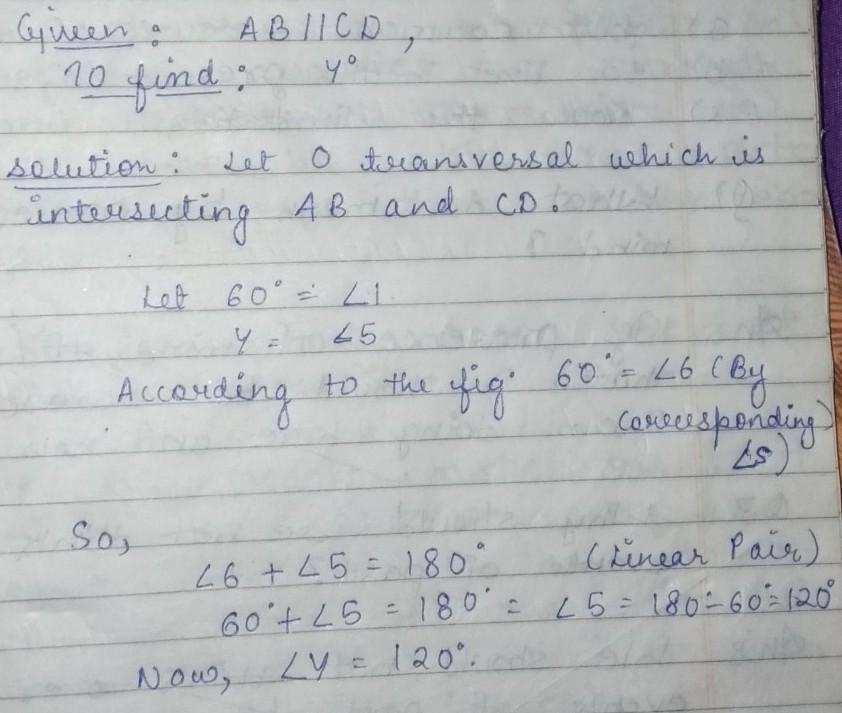 Given : AB//CD,
To find : Y°
Solution : Let O transversal which is
intersecting AB and CD.
Let 60° = ∠1
Y = ∠5
According to the fig. 60° = ∠6 (By
corresponding)
∠s)
So,
∠6 + ∠5 = 180° (Linear Pair)
60° + ∠5 = 180° = ∠5 = 180° - 60° = 120°
Now, ∠Y = 120°.